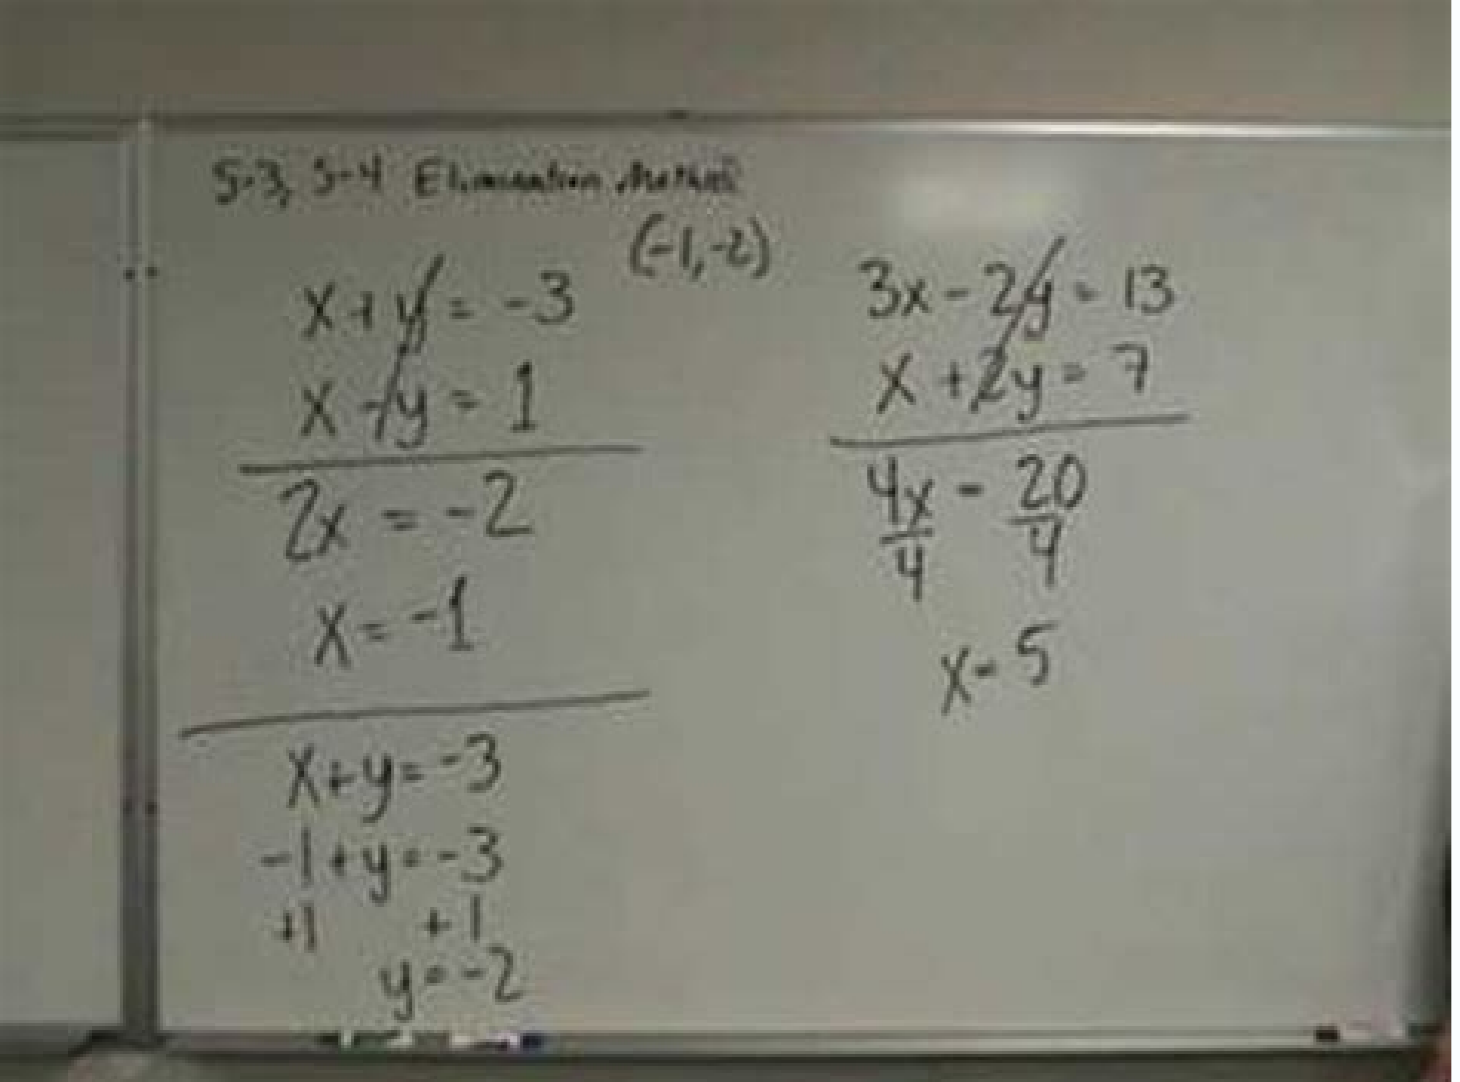 5-3, 5-4 Elimination Method
(-1,-2)
x+y=-3
x-y=1
2x=-2
x=-1
x+y=-3
-1+y=-3
+1 +1
y=-2
3x-2y=13
x+2y=7
4x = 20
4 4
x=5